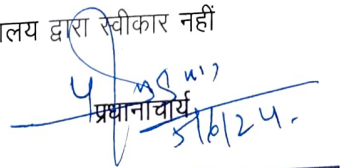 द्वारा स्वीकार नहीं
प्रधानाचार्य
5/6/24.